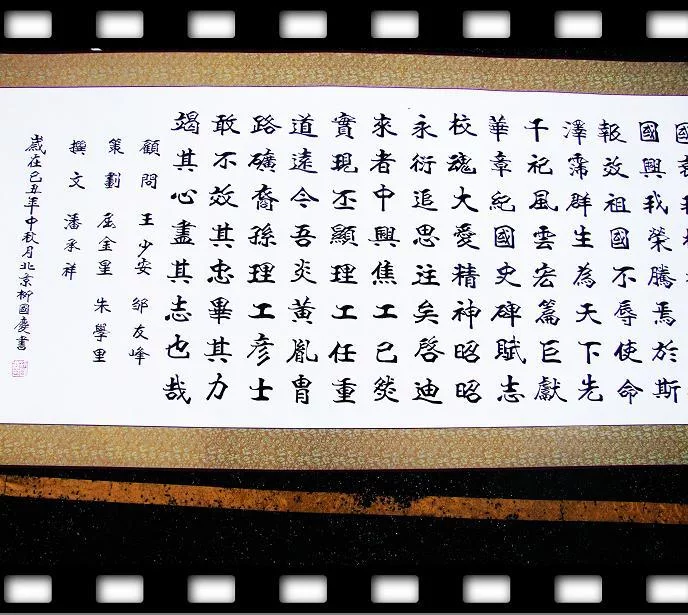 國興我榮騰焉於斯
報效祖國不辱使命
澤霈群生為天下先
千祀風雲宏篇巨獻
華章紀國史碑賦志
校魂大愛精神昭昭
永衍追思注矣啓迪
來者中興焦工已
實現丕顯理工任重
道遠今吾炎黃胤冑
路礦裔孫理工彥士
敢不效其忠畢其力
竭其心盡其志也哉
顧問 王少安 鄒友峰
策劃 屈金星 朱學里
撰文 潘承祥
歲在己丑年中秋月北京柳國慶書